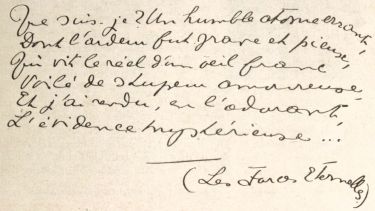 Que suis-je? Un humble atome errant,
Dont l'ardeur fut grave et pieuse,
Qui vit le réel d'un oeil franc
Voilé de stupeur amoureuse,
Et j'ai rendu, en l'adorant,
L'évidence mystérieuse...
(Les Forces Eternelles)